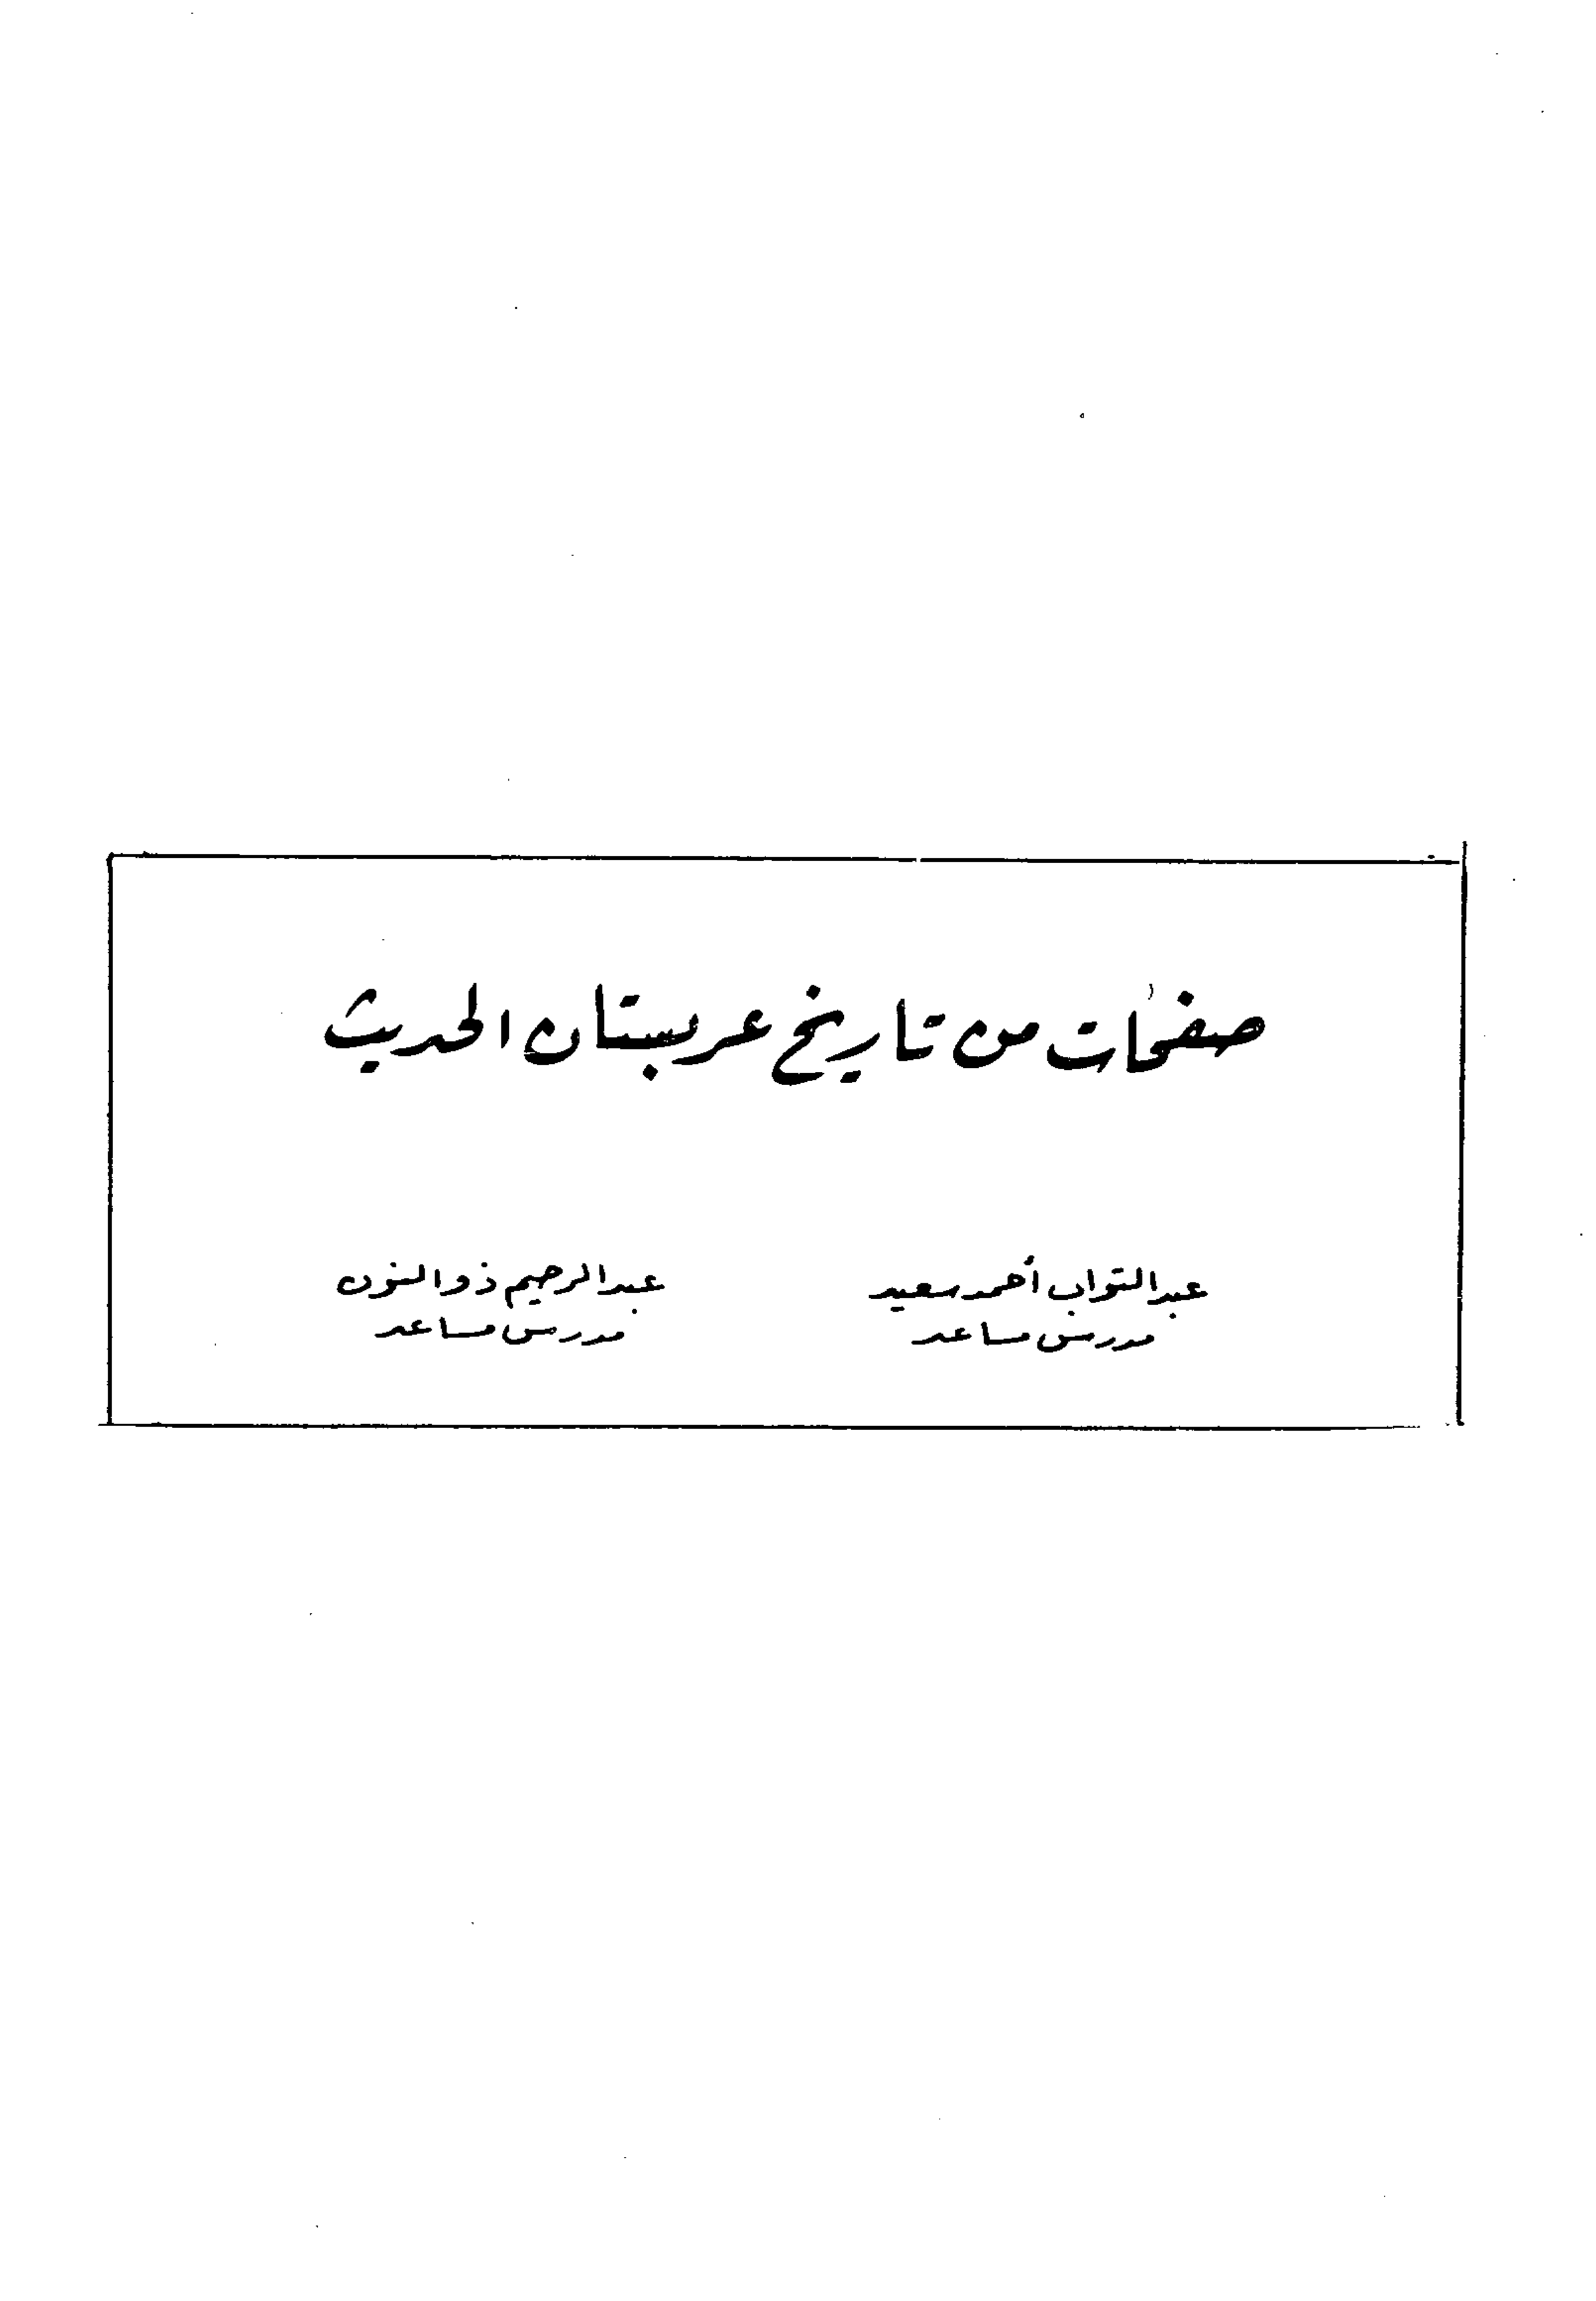 صفحات من تاريخ عربستان الحديث
عبد التواب أحمد سعيد
مدرس مساعد
عبد الرحيم ذو النون
مدرس مساعد